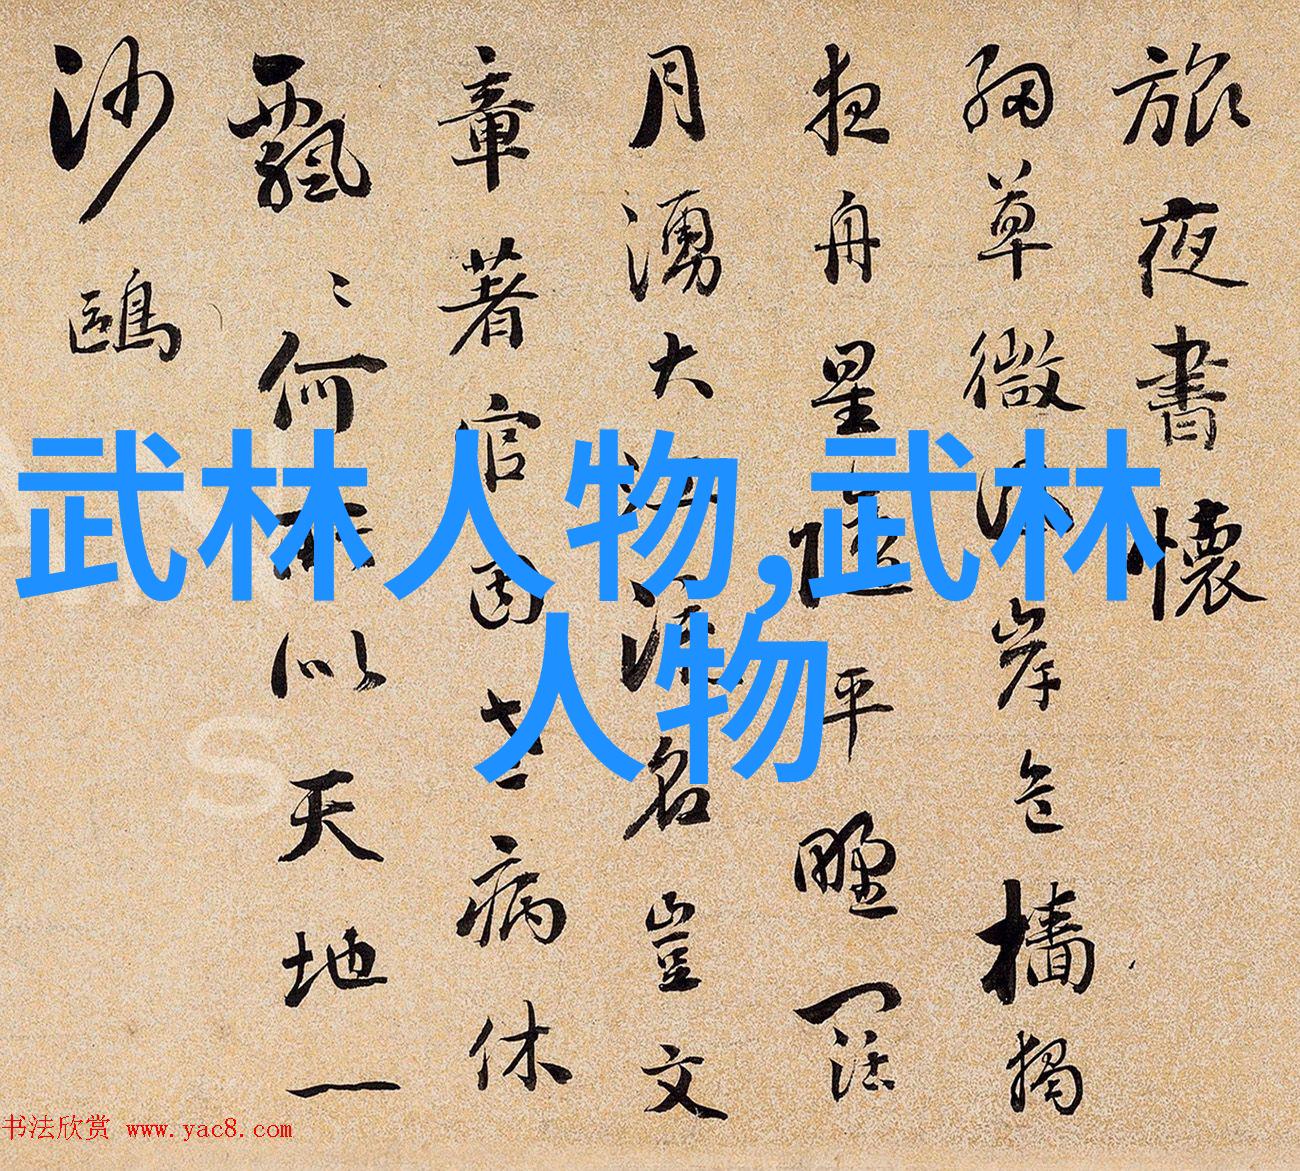 旅夜書懷
細草微岸危檣獨
夜舟星平野闊
月湧大流名豈文
章著官因老病休
飄〻何似天地一
沙鷗
武林人物,武林
人物
书法欣赏 www.yac8.com